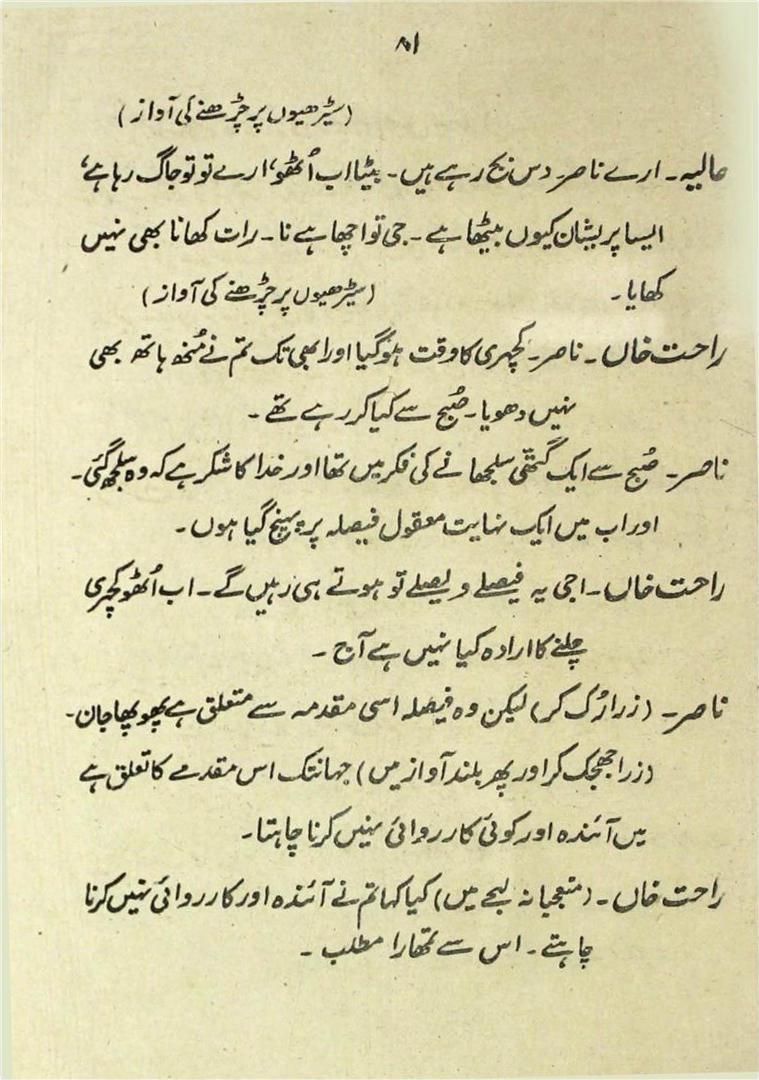 ۸۱
(سیڑھیوں پر چڑھنے کی آواز)
عالیہ۔ ارے ناصر دس بج رہے ہیں۔ بیٹا اب اُٹھو، ارے تو تو جاگ رہا ہے،
ایسا پریشان کیوں بیٹھا ہے۔ جی تو اچھا ہے نا۔ رات کھانا بھی نہیں
کھایا۔ (سیڑھیوں پر چڑھنے کی آواز)
راحت خاں۔ ناصر۔ کچہری کا وقت ہو گیا اور ابھی تک تم نے مُنھ ہاتھ بھی
نہیں دھویا۔ صُبح سے کیا کر رہے تھے۔
ناصر۔ صُبح سے ایک گتھّی سلجھانے کی فکر میں تھا اور خدا کا شکر ہے کہ وہ سلجھ گئی۔
اور اب میں ایک نہایت معقول فیصلہ پر پہنچ گیا ہوں۔
راحت خاں۔ اجی یہ فیصلے ویصلے تو ہوتے ہی رہیں گے۔ اب اُٹھو کچہری
چلنے کا ارادہ کیا نہیں ہے آج۔
ناصر۔ (زرا رُک کر) لیکن وہ فیصلہ اسی مقدمہ سے متعلق ہے پھوپھا جان۔
(زرا جھجک کر اور پھر بلند آواز میں) جہانتک اس مقدمے کا تعلق ہے
میں آئندہ اور کوئی کارروائی نہیں کرنا چاہتا۔
راحت خاں۔ (متعجبانہ لہجے میں) کیا کہا تم نے آئندہ اور کارروائی نہیں کرنا
چاہتے۔ اس سے تمھارا مطلب۔